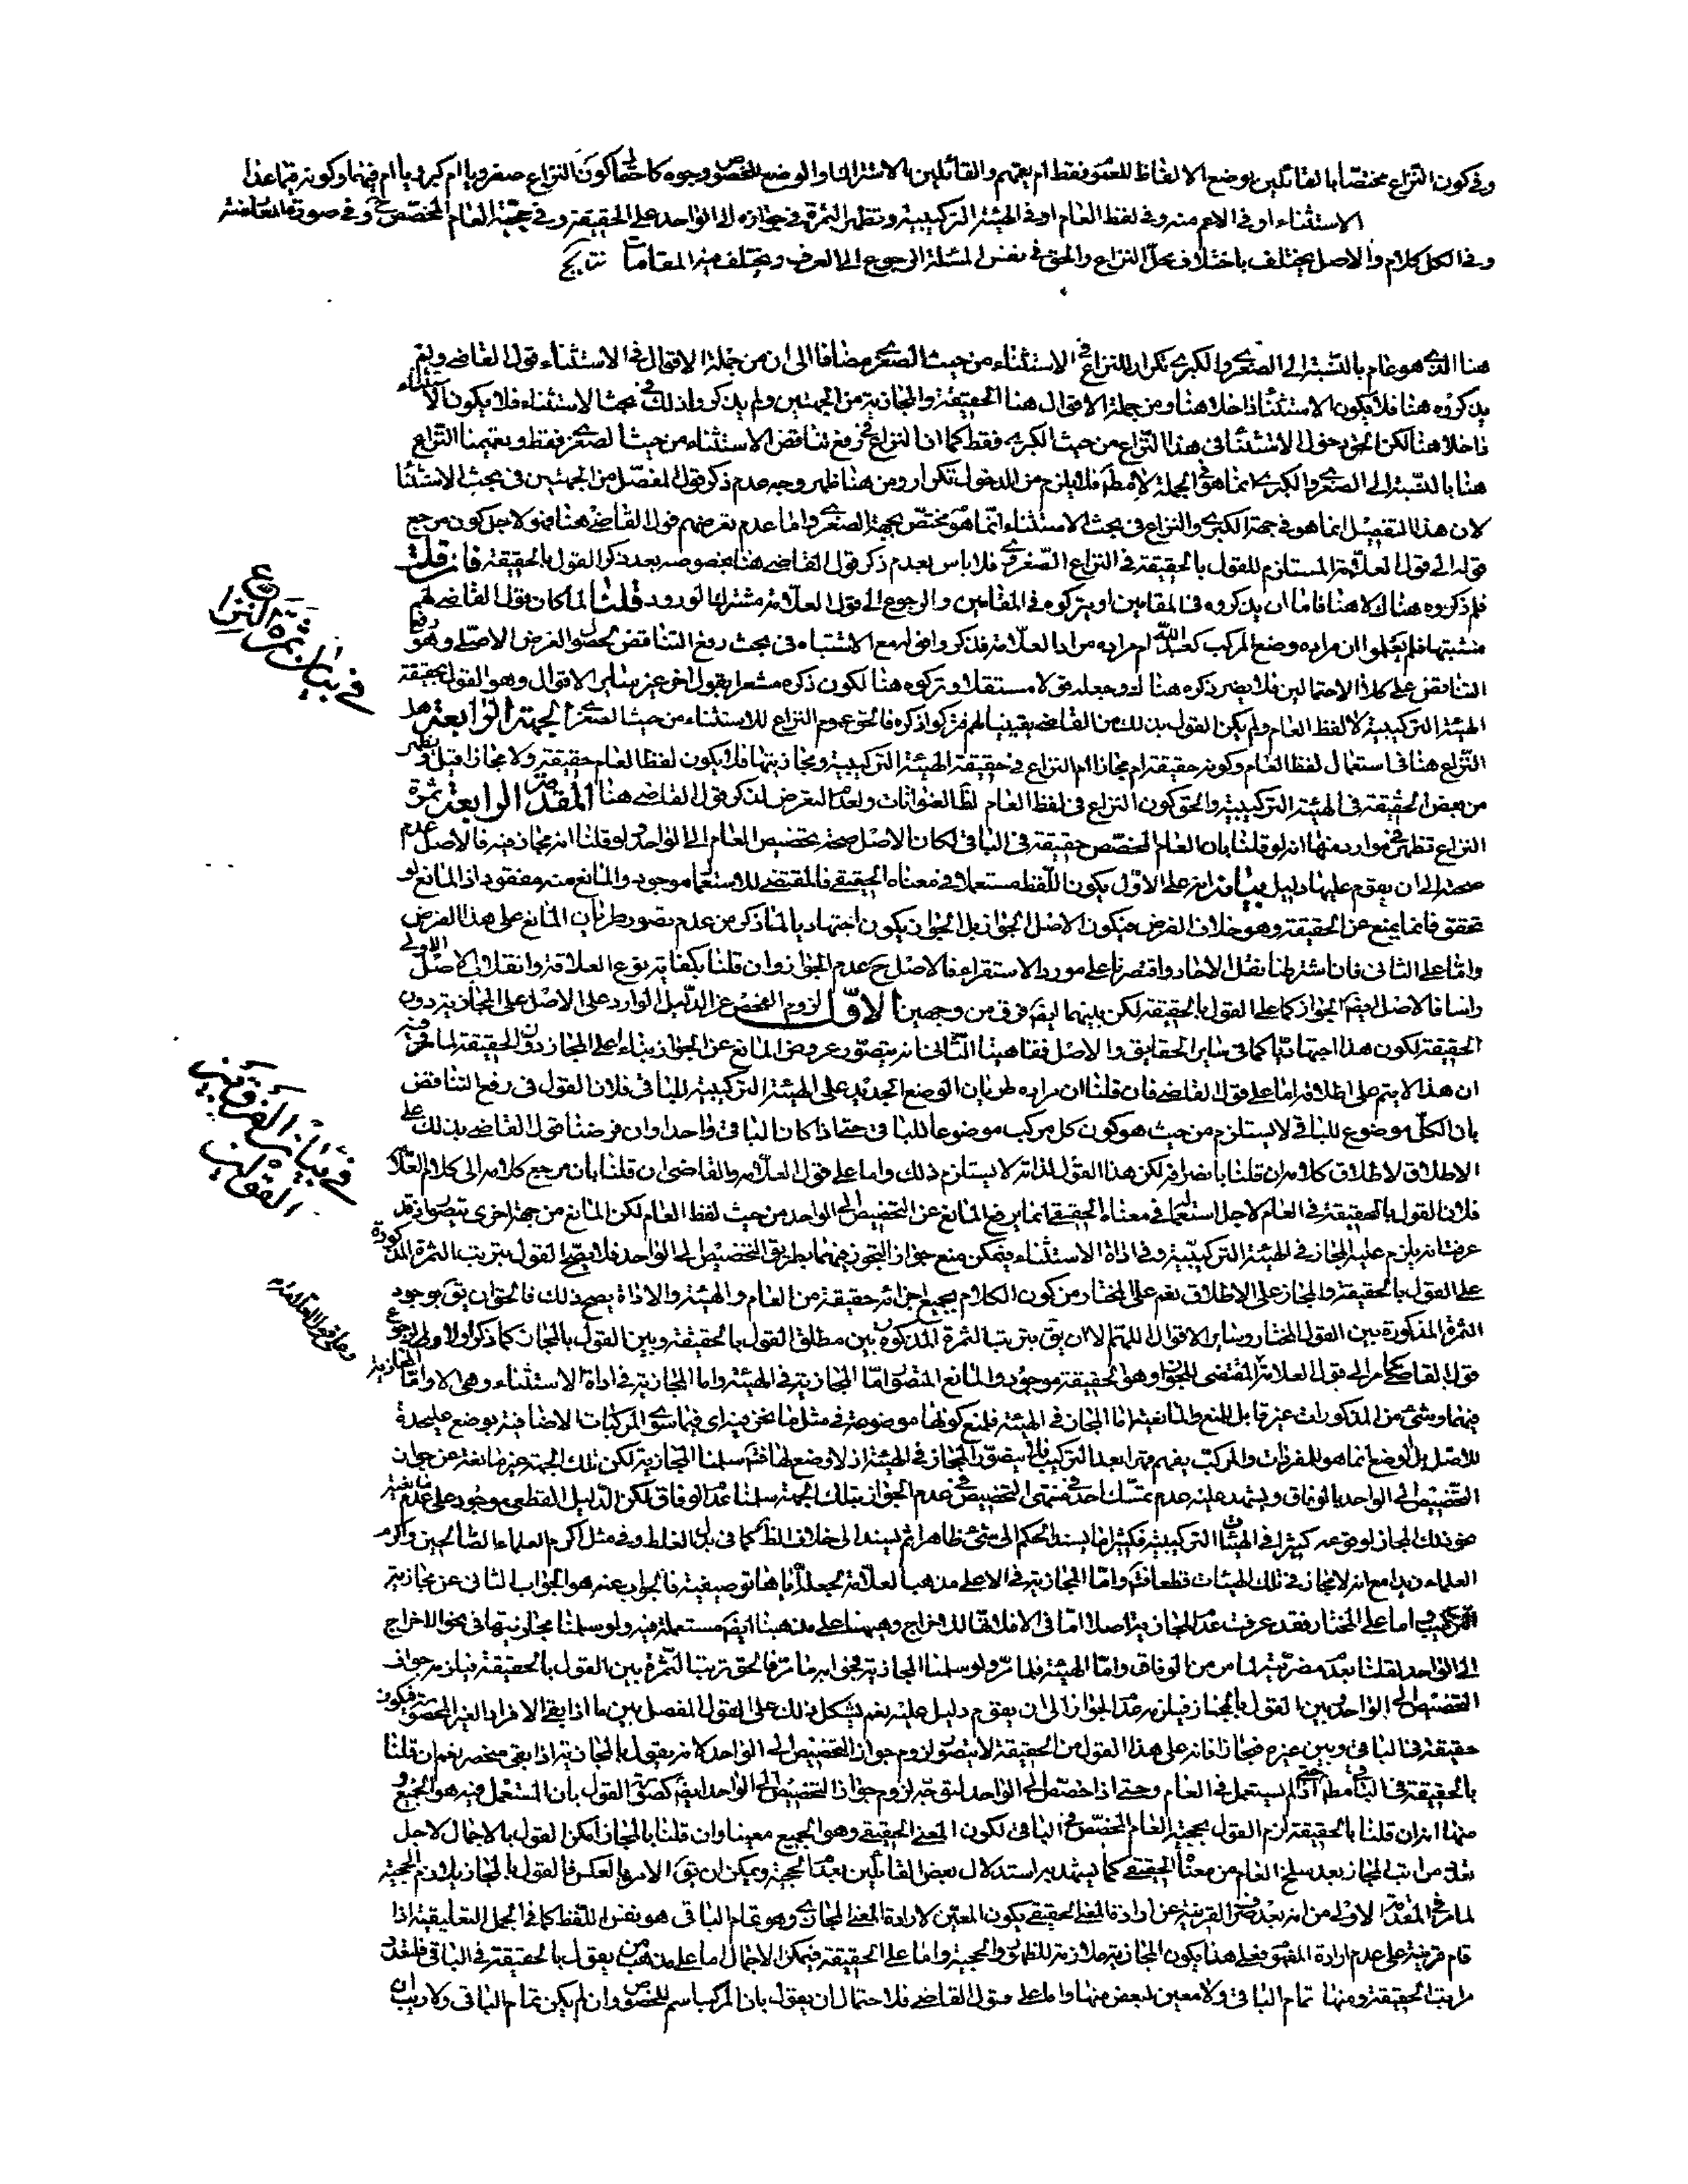 وفى كون النزاع مختصا بالقائلين بوضع الالفاظ للعموم فقط ام يعمهم والقائلين بالاشتراك او الوضع للخصوص وجوه كاحتمال كون النزاع صغرويا ام كبرويا ام فيهما وكونه فيما عدا
الاستثناء او فى الاعم منه وفى لفظ العام او فى الهيئة التركيبية وتظهر الثمرة فى جوازه الى الواحد على الحقيقة وفى حجية العام المخصص ح وفى صورة المعارضة
وفى الكل كلام والاصل يختلف باختلاف محل النزاع والحق فى نفس المسئلة الرجوع الى العرف ويختلف فيه المقامات نتايج
هنا الذى هو عام بالنسبة الى الصغرى والكبرى تكرار للنزاع فى الاستثناء من حيث الصغرى مضافا الى ان من جملة الاقوال فى الاستثناء قول القاضى ولم
يذكروه هنا فلا يكون الاستثناء داخلا هنا ومن جملة الاقوال هنا الحقيقة والمجازية من الجهتين ولم يذكروا ذلك فى بحث الاستثناء فلا يكون الاستثناء
داخلا هنا لكن الحق دخول الاستثناء فى هذا النزاع من حيث الكبرى فقط كما ان النزاع فى رفع تناقض الاستثناء من حيث الصغرى فقط وتعميمنا النزاع
هنا بالنسبة الى الصغرى والكبرى انما هو فى الجملة لا مط فلا يلزم من الدخول تكرار ومن هنا ظهر وجه عدم ذكر قول المفصل من الجهتين فى بحث الاستثناء
لان هذا التفصيل انما هو فى جهة الكبرى والنزاع فى بحث الاستثناء انما هو مختص بجهة الصغرى واما عدم تعرضهم قول القاضى هنا فهو لاجل كون مرجع
قوله الى قول العلامة المستلزم للقول بالحقيقة فى النزاع الصغروى فلا باس بعدم ذكر قول القاضى هنا بخصوصه بعد ذكر القول بالحقيقة فان قلت
فلم ذكروه هناك لا هنا فاما ان يذكروه فى المقامين او يتركوه فى المقامين والرجوع الى قول العلامة مشترك الورود قلت لما كان قول القاضى لهم
مشتبها فلم يعلموا ان مراده وضع المركب كعبد الله ام مراده مراد العلامة فذكروا قوله مع الاشتباه فى بحث رفع التناقض لحصول الغرض الاصلى وهو رفع
التناقض على كلا الاحتمالين فلا يضر ذكره هناك وجعله قولا مستقلا وتركوه هنا لكون ذكره مشعرا بقول اخر غير ساير الاقوال وهو القول بحقيقة
الهيئة التركيبية لا لفظ العام ولم يكن القول بذلك من القاضى يقينيا لهم فتركوا ذكره فالحق عموم النزاع للاستثناء من حيث الصغرى الجهة الرابعة هل
النزاع هنا فى استعمال لفظ العام وكونه حقيقة ام مجازا ام النزاع فى حقيقة الهيئة التركيبية ومجازيتها فلا يكون لفظ العام حقيقة ولا مجازا قيل ويظهر
من بعض الحقيقة فى الهيئة التركيبية والحق كون النزاع فى لفظ العام لظ العنوانات ولعدم التعرض لذكر قول القاضى هنا المقدمة الرابعة ثمرة
النزاع تظهر فى موارد منها انه لو قلنا بان العام المخصص حقيقة فى الباقى لكان الاصل صحة تخصيص العام الى الواحد ولو قلنا انه مجاز فيه فالاصل عدم
صحته الى ان يقوم عليها دليل بيانه انه على الاول يكون اللفظ مستعملا فى معناه الحقيقى فالمقتضى للاستعمال موجود والمانع منه مفقود اذ المانع لو
تحقق فانما يمنع عن الحقيقة وهو خلاف الفرض فيكون الاصل الجواز بل الجواز يكون اجتهاديا لما ذكر من عدم تصور طريان المانع على هذا الفرض
واما على الثانى فان اشترطنا نقل الاحاد واقتصرنا على مورد الاستقراء فالاصل ح عدم الجواز وان قلنا بكفاية نوع العلاقة وانقلاب الاصل الاولى
راسا فالاصل ايضا الجواز كما على القول بالحقيقة لكن بينهما ايضا فرق من وجهين الاول لزوم الفحص عن الدليل الوارد على الاصل على المجازية دون
الحقيقة لكون هذا اجتهاديا كما فى ساير الحقايق والاصل فقاهيتا الثانى انه يتصور عروض المانع عن الجواز بناء على المجاز دون الحقيقة لما مر وفيه
ان هذا لا يتم على اطلاقه اما على قول القاضى فان قلنا ان مراده طريان الوضع الجديد على الهيئة التركيبية للباقى فلان القول فى رفع التناقض
بان الكل موضوع للباقى لا يستلزم من حيث هو كون كل مركب موضوعا للباقى حتى اذا كان الباقى واحدا وان فرضنا قول القاضى بذلك على
الاطلاق لاطلاق كلامه ان قلنا بانصرافه لكن هذا القول لذاته لا يستلزم ذلك واما على قول العلامة والقاضى ان قلنا بان مرجع كلامه الى كلام العلامة
فلان القول بالحقيقة فى العام لاجل استعماله فى معناه الحقيقى انما يرفع المانع عن التخصيص الى الواحد من حيث لفظ العام لكن المانع من جهة اخرى يتصور فقد
عرفت انه يلزم عليه المجاز فى الهيئة التركيبية وفى اداة الاستثناء فيمكن منع جواز التجوز فيهما بطريق التخصيص الى الواحد فلا يصح القول بترتب الثمرة المذكورة
على القول بالحقيقة والمجاز على الاطلاق نعم على المختار من كون الكلام بجميع اجزائه حقيقة من العام والهيئة والاداة يصح ذلك فالحق ان يق بوجود
الثمرة المذكورة بين القول المختار وساير الاقوال اللهم الا ان يق بترتب الثمرة المذكورة بين مطلق القول بالحقيقة وبين القول بالمجاز كما ذكر اولا ولو لرجوع
قول القاضى كما مر الى قول العلامة المقتضى للجواز وهو الحقيقة موجود والمانع المتصور اما المجازية فى الهيئة واما المجازية فى اداة الاستثناء وهى الا واما المجازية
فيهما وشئ من المذكورات غير قابل للمنع والمانعية اما المجاز فى الهيئة فلمنع كونها موضوعة فى مثل ما نحن فيه اى فيما سوى المركبات الاضافية بوضع عليحدة
للاصل بل الوضع انما هو للمفردات والمركب يفهم قهرا بعد التركيب فلا يتصور المجاز فى الهيئة اذ لا وضع لها فتم سلمنا المجازية لكن تلك الجهة غير مانعة عن جواز
التخصيص الى الواحد بالوفاق ويشهد عليه عدم تمسك احد فى منتهى التخصيص فى عدم الجواز بتلك الجهة سلمنا عدم الوفاق لكن الدليل القطعى موجود على عدم مانعية
نحو ذلك المجاز لوقوعه كثيرا فى الهيئات التركيبية فكثيرا ما يسند الحكم الى شئ ظاهرا ثم يسند الى خلاف الظ كما فى بدل الغلط وفى مثل اكرم العلماء الصالحين واكرم
العلماء زيدا مع انه لا مجاز فى تلك الهيئات قطعا فتم واما المجازية فى الا على مذهب العلامة لجعله اياها توصيفية فالجواب عنه هو الجواب الثانى عن مجازية
التركيب واما على المختار فقد عرفت عدم المجازية اصلا اما فى الا فلانها للاخراج وهيهنا على مذهبنا ايضا مستعملة فيه ولو سلمنا مجازيتها فى نحو الاخراج
الى الواحد لقلنا بعدم مضريته لما مر من الوفاق واما الهيئة فلما مر ولو سلمنا المجازية فجوابه ما مر فالحق ترتب الثمرة بين القول بالحقيقة فيلزمه جواز
التخصيص الى الواحد وبين القول بالمجاز فيلزمه عدم الجواز الى ان يقوم دليل عليه نعم يشكل ذلك على القول المفصل بين ما اذا بقى الافراد الغير المحصورة فيكون
حقيقة فى الباقى وبين غيره فمجازا فانه على هذا القول من الحقيقة لا يتصور لزوم جواز التخصيص الى الواحد لانه يقول بالمجازية اذا بقى منحصر نعم ان قلنا
بالحقيقة فى الباقى مط حتى اذا لم يستعمل فى العام وحتى اذا خصص الى الواحد لتوجه لزوم جواز التخصيص الى الواحد ايضا كصورة القول بان المستعمل فيه هو الجميع و
منها انه ان قلنا بالحقيقة لزم القول بحجية العام المخصص فى الباقى لكون المعنى الحقيقى وهو الجميع معينا وان قلنا بالمجاز امكن القول بالاجمال لاجل
تعدد مراتب المجاز بعد سلخ العام من معناه الحقيقى كما يشهد به استدلال بعض القائلين بعدم الحجية ويمكن ان يق الامر بالعكس فالقول بالمجاز يلازم الحجية
لما مر فى المقدمة الاولى من انه بعد صرف القرينة عن ارادة المعنى الحقيقى يكون المعين لارادة المعنى المجازى وهو تمام الباقى هو نفس اللفظ كما فى الجمل التعليقية اذا
قام قرينة على عدم ارادة المفهوم فعلى هذا يكون المجازية ملازمة للظهور والحجية واما على الحقيقة فيمكن الاجمال اما على مذهب من يقول بالحقيقة فى الباقى فلتعدد
مراتب الحقيقة ومنها تمام الباقى ولا معين لبعض منها واما على قول القاضى فلاحتمال ان يقول بان المركب اسم للخصوص وان لم يكن تمام الباقى ولا ريب ان
فى بيان ثمرة النزاع
فى بيان الفرق بين القولين